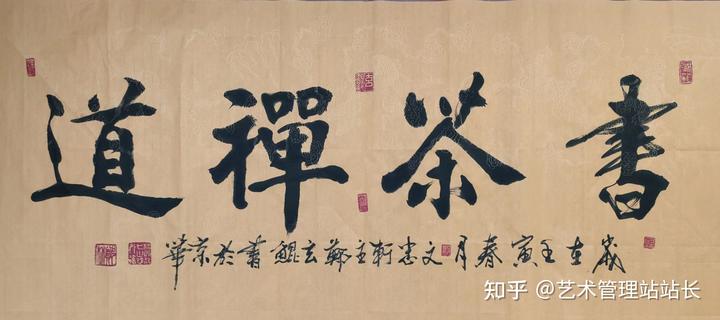 書茶禪道
歲在壬寅春月文忠軒主鄭玄鯤書於京華
知乎 @艺术管理站站长